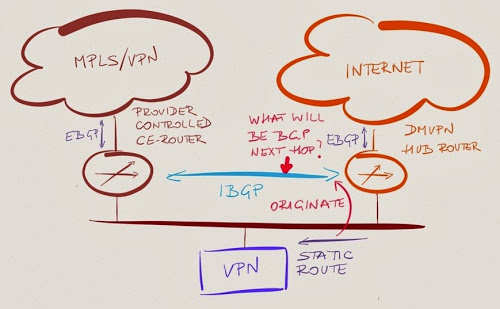 MPLS/VPN
INTERNET
EBGP
PROVIDER
CONTROLLED
CE-ROUTER
WHAT WILL
BE BGP
NEXT HOP?
EBGP
DMVPN
HUB ROUTER
IBGP
ORIGINATE
VPN
STATIC
ROUTE